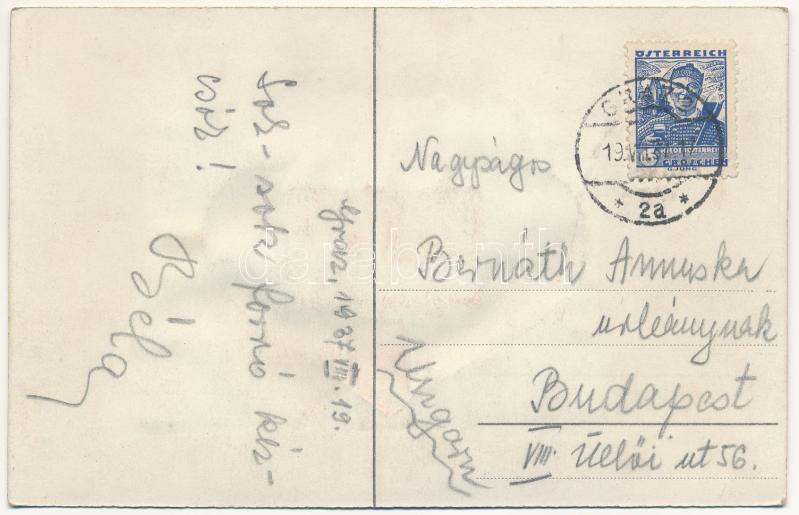 Sok-sok forró kéz-
csók!
Béla
Graz, 1937 VIII. 19.
ÖSTERREICH
GROSCHEN
G. JUNG
GRAZ
19.VIII.37
* 2a *
Nagyságos
Bernáth Annuska
úrleánynak
Budapest
VIII. Üllői ut 56.
Ungarn
darabanth